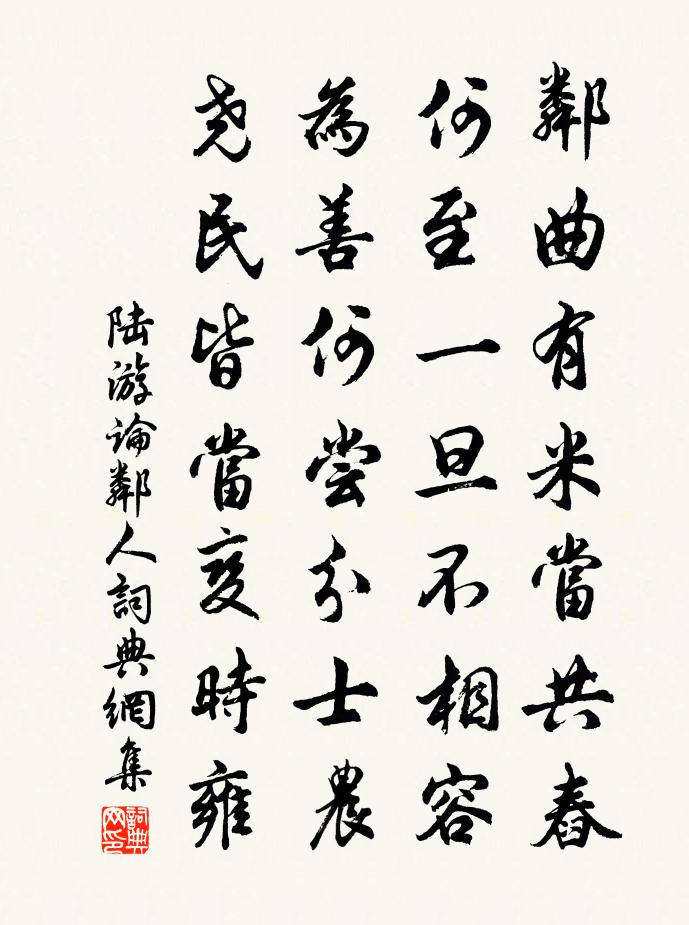 鄰曲有米當共舂
何至一旦不相容
為善何嘗分士農
堯民皆當變時雍
陸游論鄰人詞典網集
詞典网印